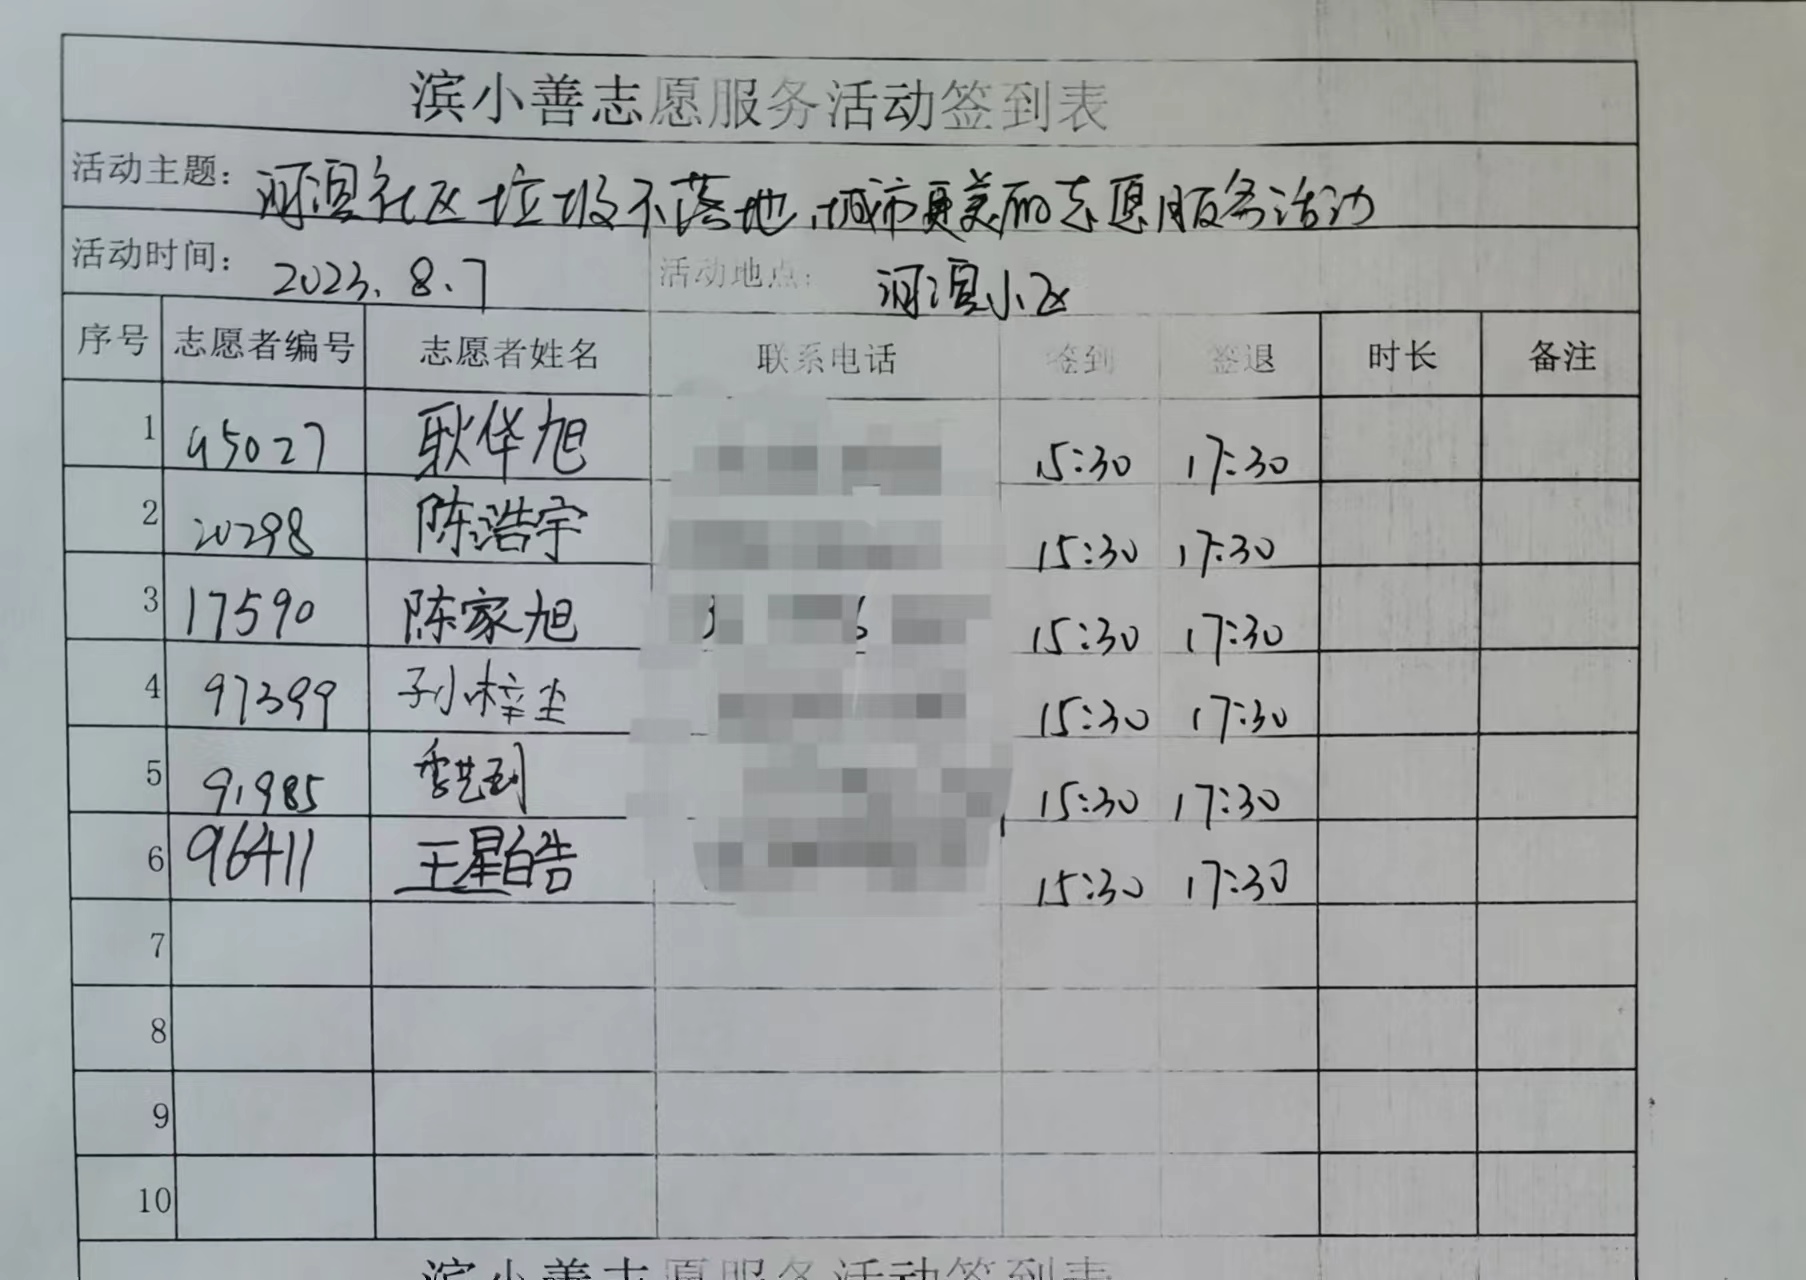 滨小善志愿服务活动签到表
活动主题： 河滨社区垃圾不落地，城市更美丽志愿服务活动
活动时间： 2023.8.7 活动地点： 河滨小区
序号 志愿者编号 志愿者姓名 联系电话 签到 签退 时长 备注
1 95027 耿华旭 15:30 17:30
2 20298 陈浩宇 15:30 17:30
3 17590 陈家旭 15:30 17:30
4 97399 孙梓 15:30 17:30
5 91985 15:30 17:30
6 96411 王星皓 15:30 17:30
7
8
9
10
滨小善志愿服务活动签到表